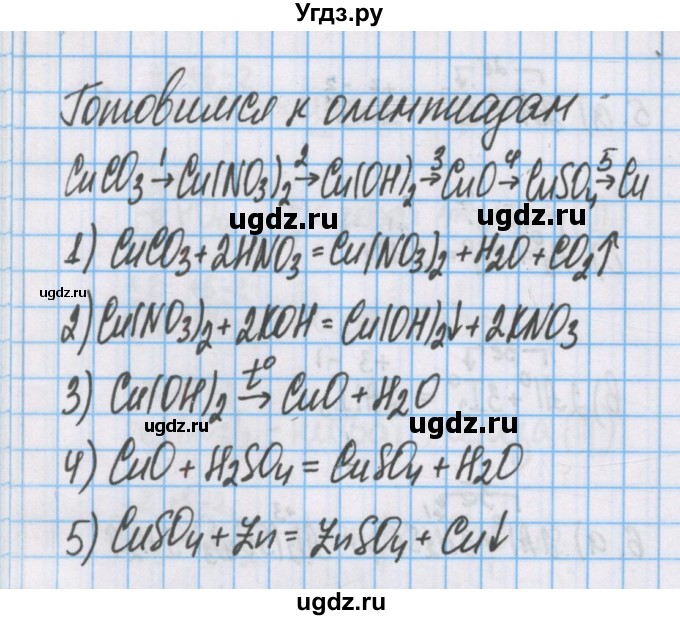 Угдз.ру
Готовимся к олимпиадам
CuCO₃ →¹ Cu(NO₃)₂ →² Cu(OH)₂ →³ CuO →⁴ CuSO₄ →⁵ Cu
ugdz.ru
ugdz.ru
1) CuCO₃ + 2HNO₃ = Cu(NO₃)₂ + H₂O + CO₂↑
ugdz.ru
ugdz.ru
2) Cu(NO₃)₂ + 2KOH = Cu(OH)₂↓ + 2KNO₃
3) Cu(OH)₂ →t° CuO + H₂O
ugdz.ru
ugdz.ru
4) CuO + H₂SO₄ = CuSO₄ + H₂O
5) CuSO₄ + Zn = ZnSO₄ + Cu↓
ugdz.ru